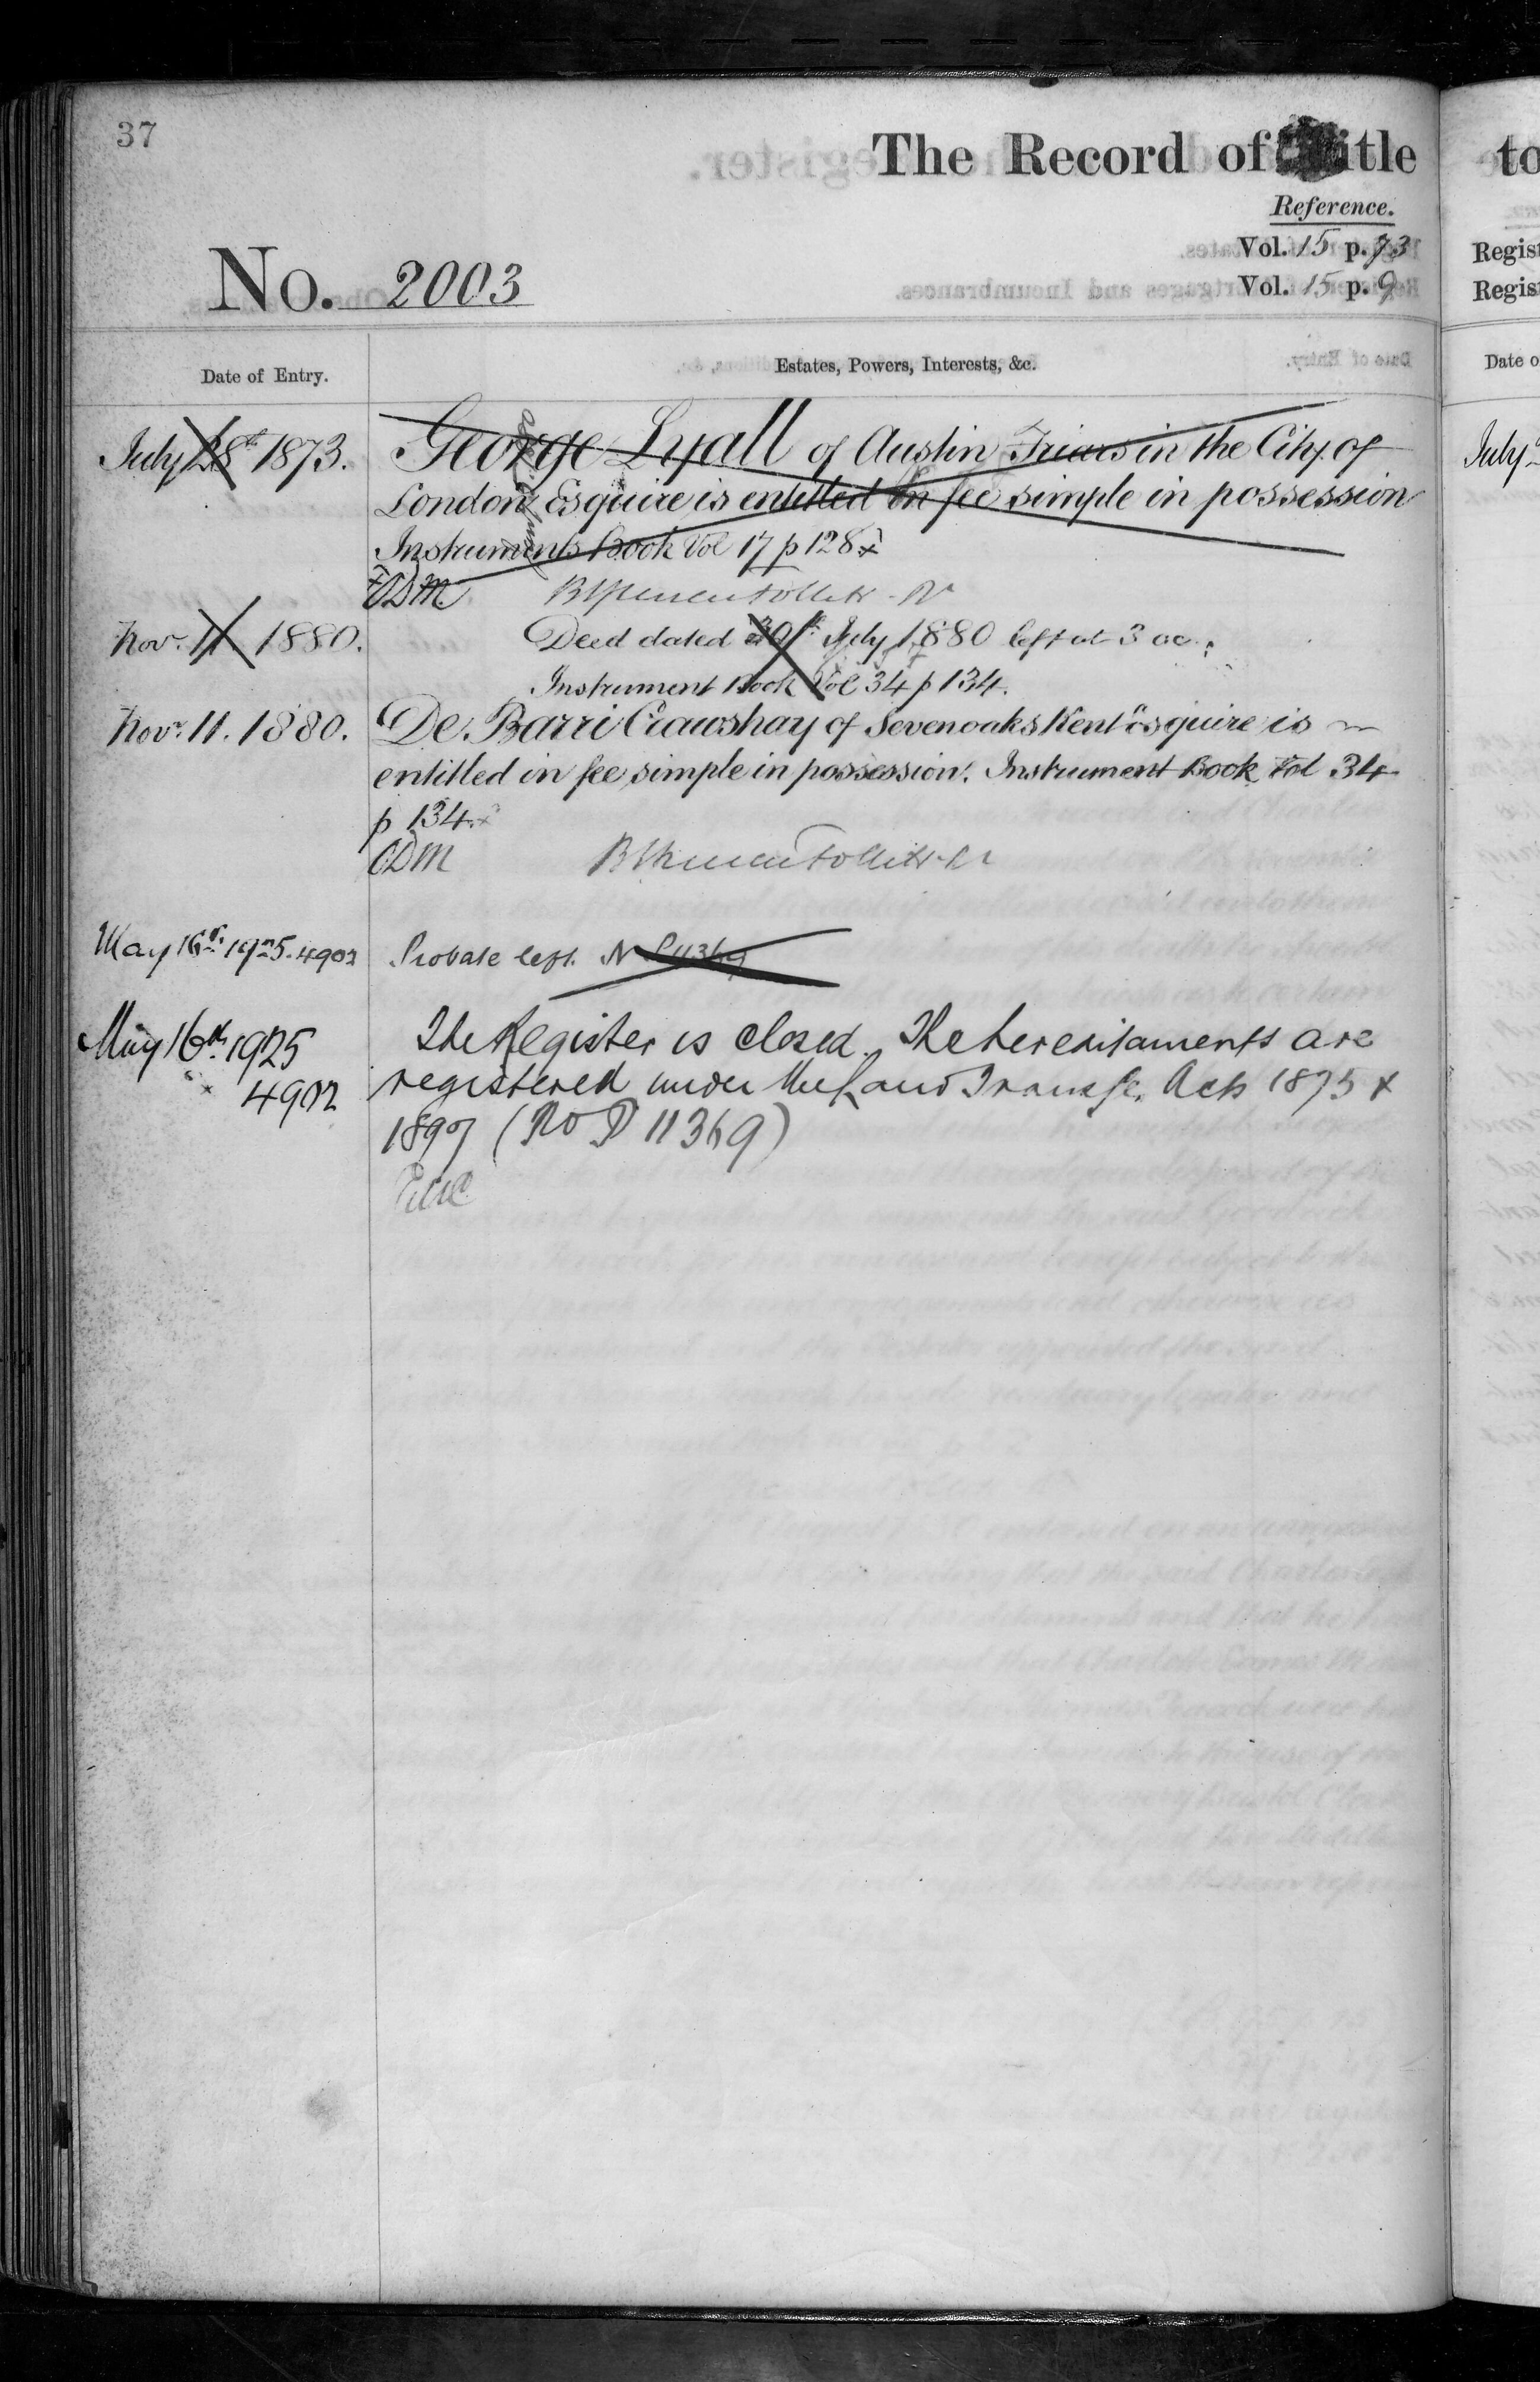 37
The Record of Title
Reference.
Vol. 15 p. 73
Vol. 15 p. 9
No. 2003
Date of Entry.
Estates, Powers, Interests, &c.
July 28th 1873.
George Lyall of Austin Friars in the City of
London Esquire is entitled in fee simple in possession
Instruments Book Vol 17 p 128
CDM
Nov. 11 1880.
Deed dated 30th July 1880 left at 3 oc.
Instrument Book Vol 34 p 134.
Novr. 11. 1880.
De Barri Crawshay of Sevenoaks Kent Esquire is
entitled in fee simple in possession. Instrument Book Vol 34
p 134.
CDM
May 16th 1925. 4902
Probate left. P11369
May 16th 1925
4902
The Register is closed. The hereditaments are
registered under the Land Transfer Acts 1875 &
1897 (No P 11369)
to
Regist
Regis
Date o
July